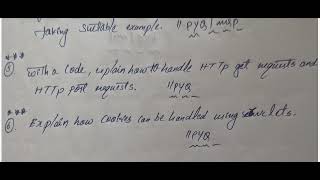 taking suitable example. 11PYQ | MQP
*** 
⑤ With a code, explain how to handle HTTP get requests and
HTTP post requests. 11PYQ
***
⑥ Explain how Cookies can be handled using servlets.
11PYQ